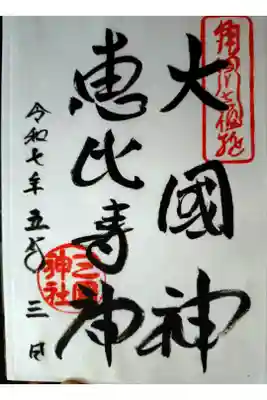 大國神
恵比寿神
三囲神社
令和七年五月三日